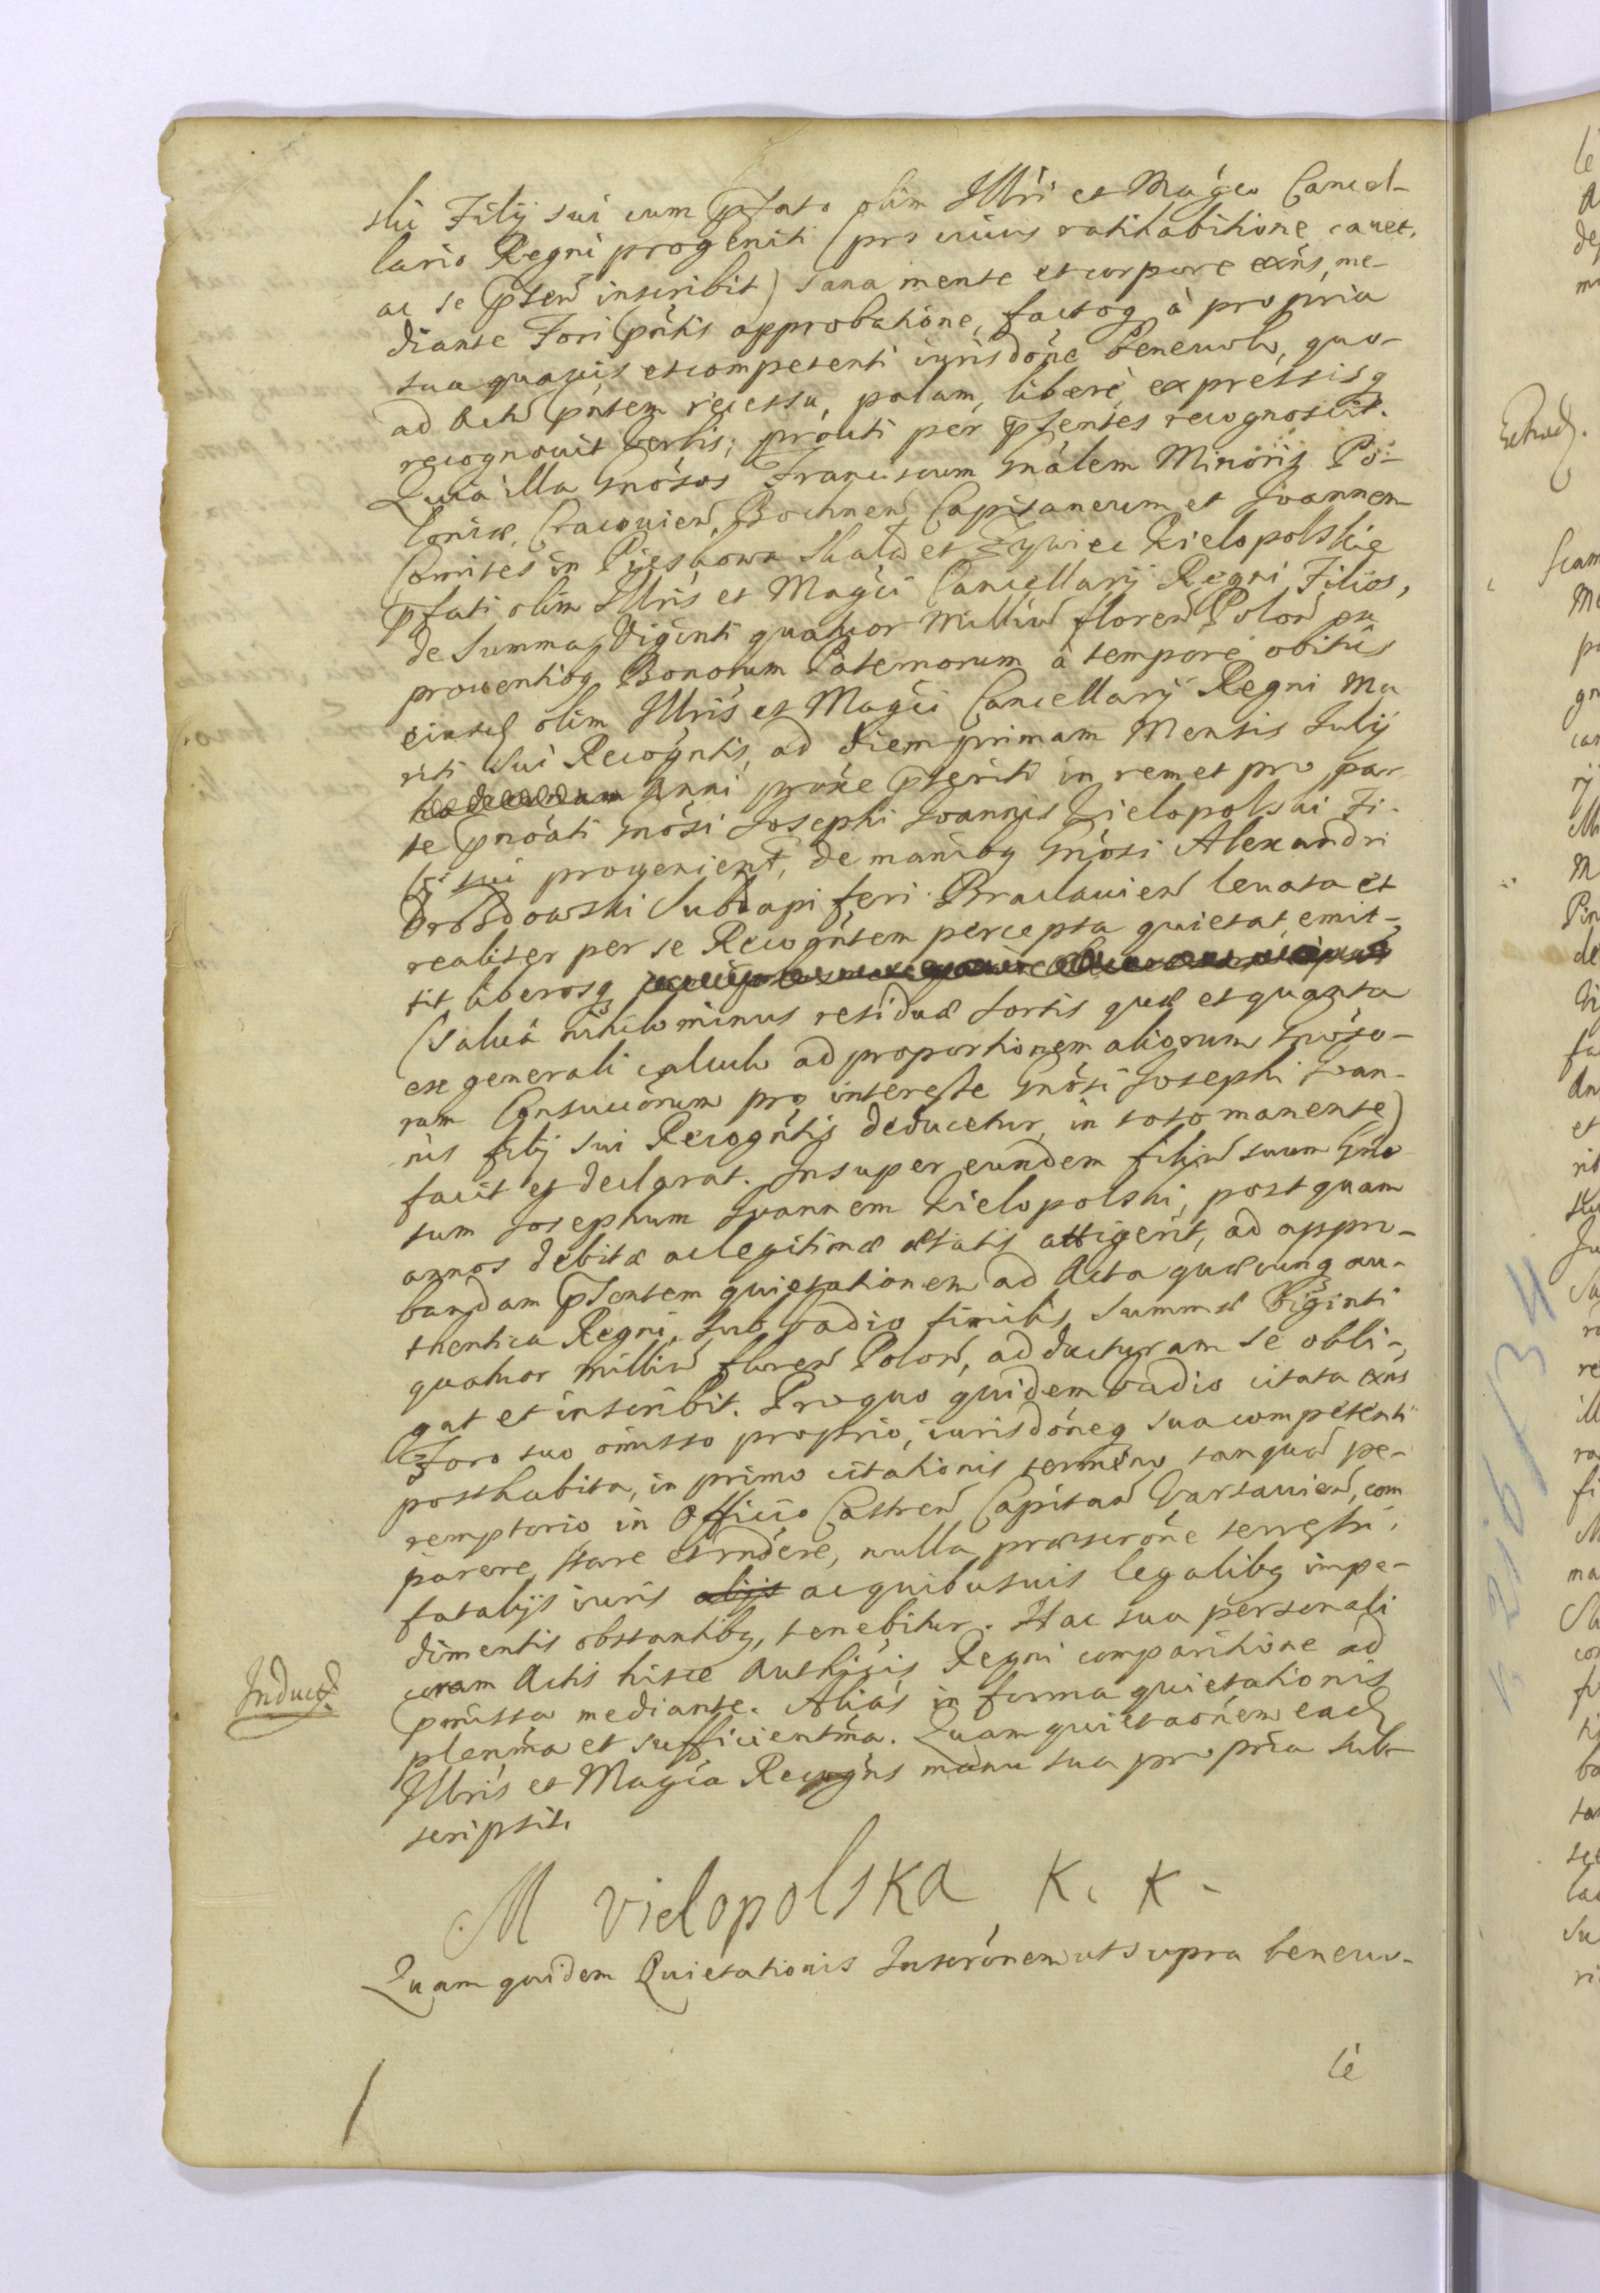 ski Filij sui cum pfato olim Illri et Magco Cancel-
lario Regni progeniti (pro cuius ratihabitione cauet,
ac se psen inscribit) sana mente et corpore exns, me-
diante Fori pntis approbatione, factoq à propria
sua quauis et competenti iurisdone beneuolo, quo-
ad Actu pntem recessu, palam, liberè, expressisq
recognouit verbis; prouti per psentes recognoscit.
Quia illa Gnosos Franciscum Gnalem Minoris Po-
loniæ, Cracouien, Bochnen Capitaneum et Joannem
Comites in Pieskowa Skała et Zywiec Wielopolskie
pfati olim Illris et Magci Cancellarij Regni Filios,
de Summa Viginti quatuor Milliu floren Polon ex
prouentibq Bonorum Paternorum à tempore obitûs
eiusd olim Illris et Magci Cancellarij Regni Ma
riti sui Recogntis, ad diem primam Mensis Julij
Anni proxe pteriti in rem et pro par
te pnoati Gnosi Josephi Joannis Wielopolski Fi-
lij sui prouenient, de manibq Gnosi Alexandri
Drozdowski Subdapiferi Braclauien leuata et
realiter per se Recogntem percepta quietat, emit-
tit, liberosq
(Saluâ nihilominus residuæ sortis quæ et quanta
ex generali calculo ad proportionem aliorum Gnoso-
rum Consuccorum pro interesse Gnosi Josephi Joan-
nis filij sui Recogntis deducetur, in toto manente)
facit et declarat. Insuper eundem filiu suum Gno
sum Josephum Joannem Wielopolski, postquam
annos debitæ ac legitimæ ætatis attigerit, ad appro-
bandam psentem quietationem ad Acta quæcunq au-
thentica Regni, sub vadio similis Summæ Viginti
quatuor milliu floren Polon, adducturam se obli-
gat et inscribit. Pro quo quidem vadio citata exns
Foro suo omisso proprio, iurisdoneq sua competenti
posthabita, in primo citationis termino tanqua pe-
remptorio in Officio Castren Capitan Varsauien, com
parere, stare et rndere, nulla præscrone terrestri,
fatalijs iuris alijs ac quibusuis legalibq impe-
dimentis obstantibq, tenebitur. Hac sua personali
coram Actis hisce Authcis Regni comparitione ad
pmissa mediante. Aliàs in forma quietationis
Induct
plenma et sufficientma. Quam quietaonem ead
Illris et Magca Recogns manu sua propria sub
scripsit.
M vielopolska K. K.
Quam quidem Quietationis Inscronem ut supra beneuo-
lè